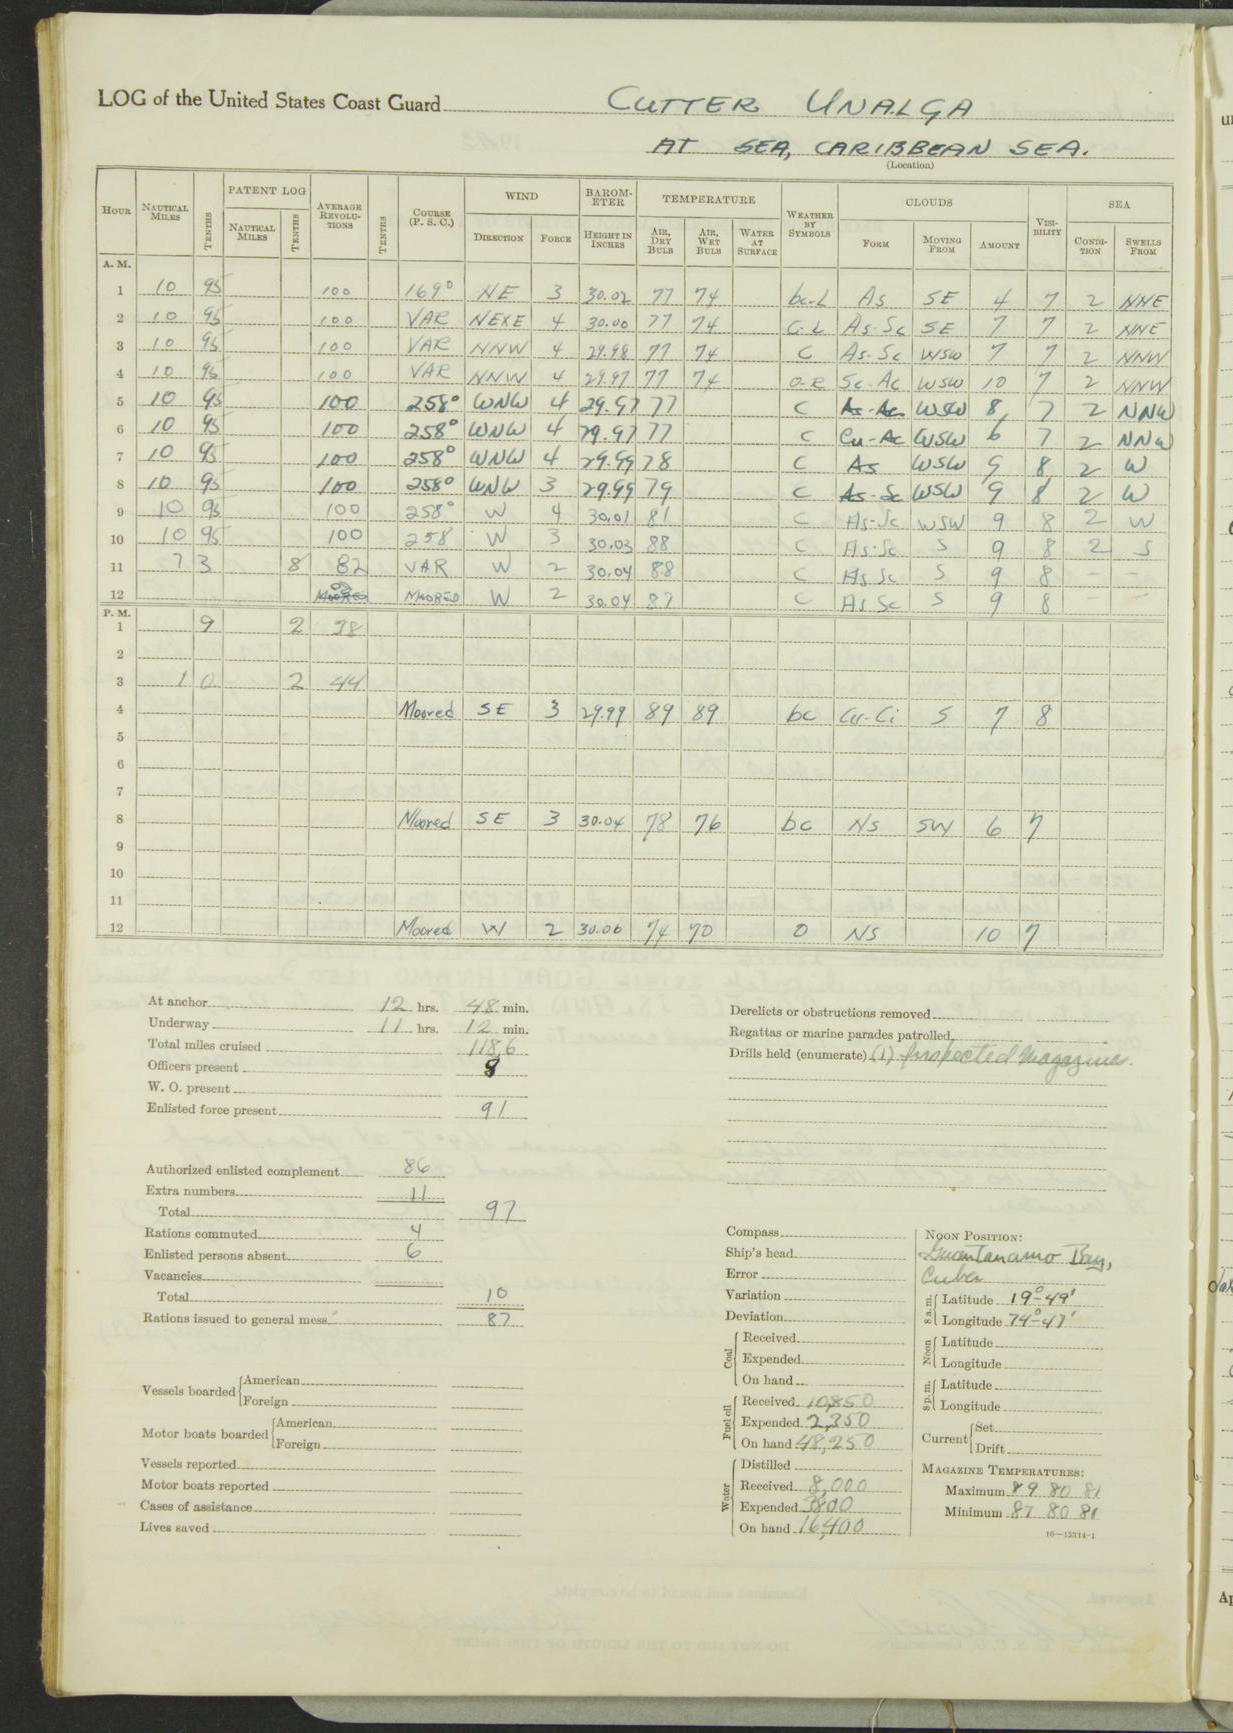 LOG of the United States Coast Guard CUTTER UNALGA
AT SEA, CARIBBEAN SEA.
(Location)
HOUR NAUTICAL MILES TENTHS PATENT LOG NAUTICAL MILES TENTHS AVERAGE REVOLUTIONS TENTHS COURSE (P. S. C.) WIND DIRECTION FORCE BAROMETER HEIGHT IN INCHES TEMPERATURE AIR, DRY BULB AIR, WET BULB WATER AT SURFACE WEATHER BY SYMBOLS CLOUDS FORM MOVING FROM AMOUNT VISIBILITY SEA CONDITION SWELLS FROM
A. M.
1 10 95 100 169° NE 3 30.02 77 74 bc-L As SE 4 7 2 NNE
2 10 95 100 VAR NEXE 4 30.00 77 74 C-L As-Sc SE 7 7 2 NNE
3 10 95 100 VAR NNW 4 29.98 77 74 C As-Sc WSW 7 7 2 NNW
4 10 95 100 VAR NNW 4 29.97 77 74 O-R Sc-Ac WSW 10 7 2 NNW
5 10 95 100 258° WNW 4 29.97 77 C As-Ac WSW 8 7 2 NNW
6 10 95 100 258° WNW 4 29.97 77 C Cu-Ac WSW 6 7 2 NNW
7 10 95 100 258° WNW 4 29.99 78 C As WSW 9 8 2 W
8 10 95 100 258° WNW 3 29.99 79 C As-Sc WSW 9 8 2 W
9 10 95 100 258° W 4 30.01 81 C As-Sc WSW 9 8 2 W
10 10 95 100 258 W 3 30.03 88 C As-Sc S 9 8 2 S
11 7 3 8 82 VAR W 2 30.04 88 C As Sc S 9 8 - -
12 MOORED W 2 30.04 87 C As Sc S 9 8 - -
P. M.
1 9 2 38
2
3 1 0 2 44
4 Moored SE 3 29.99 89 89 bc Cu-Ci S 7 8
5
6
7
8 Moored SE 3 30.04 78 76 bc NS SW 6 7
9
10
11
12 Moored W 2 30.06 74 70 O NS 10 7
At anchor 12 hrs. 48 min.
Underway 11 hrs. 12 min.
Total miles cruised 118.6
Officers present 8
W. O. present
Enlisted force present 91
Authorized enlisted complement 86
Extra numbers 11
Total 97
Rations commuted 4
Enlisted persons absent 6
Vacancies
Total 10
Rations issued to general mess 87
Vessels boarded American
Foreign
Motor boats boarded American
Foreign
Vessels reported
Motor boats reported
Cases of assistance
Lives saved
Derelicts or obstructions removed
Regattas or marine parades patrolled
Drills held (enumerate) (1) Inspected Magazines.
Compass
Ship's head
Error
Variation
Deviation
Coal Received
Expended
On hand
Fuel oil Received 10,850
Expended 2,350
On hand 48,250
Water Distilled
Received 8,000
Expended 3800
On hand 16,400
NOON POSITION:
Guantanamo Bay,
Cuba
8 a. m. Latitude 19°-49'
Longitude 74°-47'
Noon Latitude
Longitude
8 p. m. Latitude
Longitude
Current Set
Drift
MAGAZINE TEMPERATURES:
Maximum 89 80 81
Minimum 87 80 81
16—13314-1